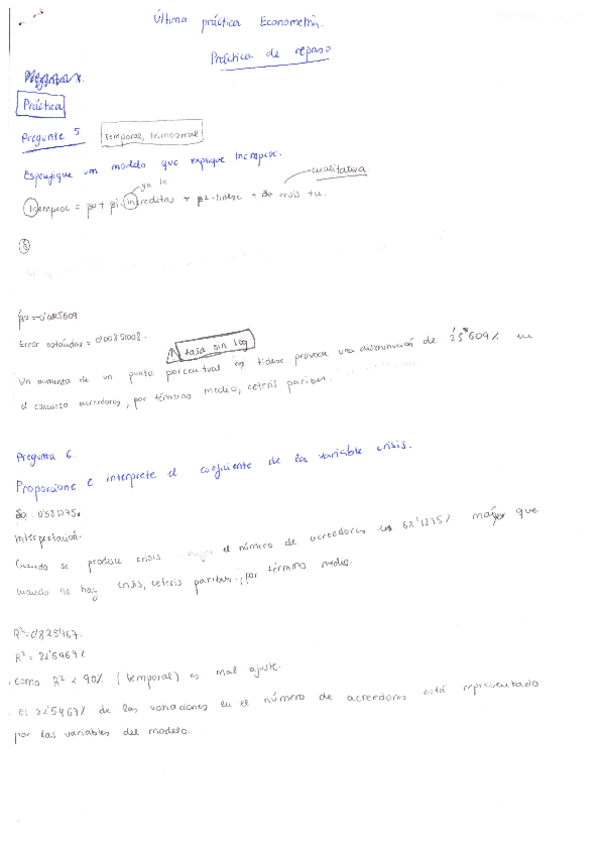 Última práctica Econometría.
Práctica de repaso
Práctica
Pregunta 5
temporal, trimestral
Especifique un modelo que explique lnemproc.
cualitativa
ya ln
lnemproc = β0 + β1·lncreditos + β2·tidesc + δ0 crisis + u.
Error estándar = 0'00851008.
tasa sin log
Un aumento de un punto porcentual en tidesc provoca una disminución de 2'5609% en
el concurso acreedores, por término medio, ceteris paribus.
Pregunta 6.
Proporcione e interprete el coeficiente de la variable crisis.
Interpretación.
Cuando se produce crisis el número de acreedores es mayor que
cuando no hay crisis, ceteris paribus, por término medio.
R²=0'825467.
R² = 82'5467%
. Como R² < 90% (temporal) es mal ajuste.
. El 82'5467% de las variaciones en el número de acreedores está representado
por las variables del modelo.